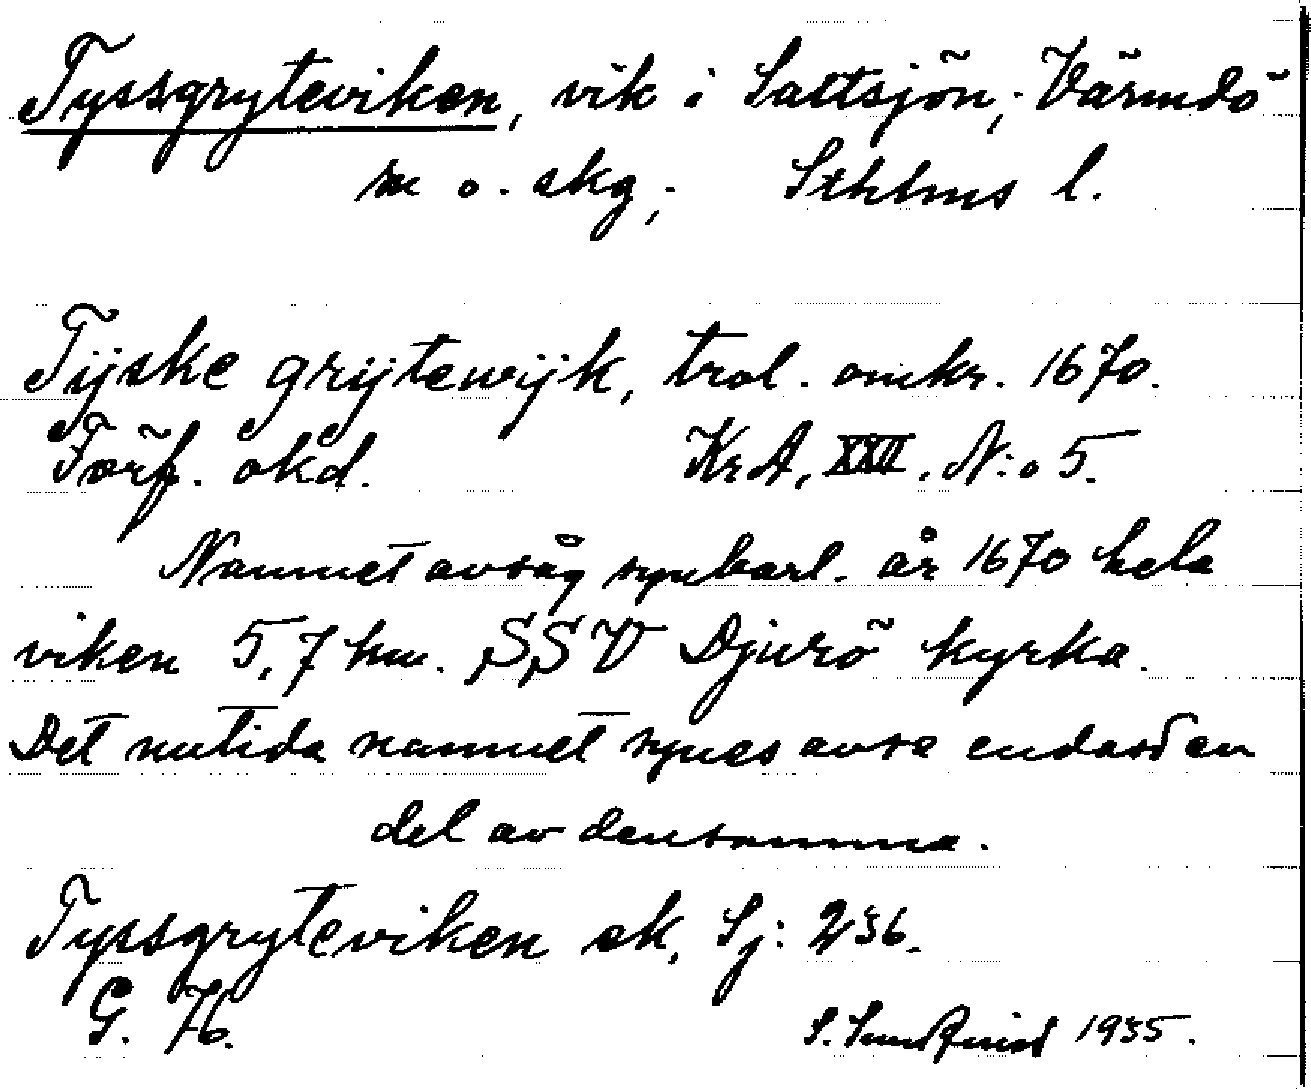 Tyssgryteviken, vik i Saltsjön, Värmdö
sn o. skg, Sthlms l.
Tÿske grÿtewÿk, trol. omkr. 1670.
Förf. okd. KrA, XXII, N:o 5.
Namnet avsåg synbarl. år 1670 hela
viken 5,7 km. SSV Djurö kyrka.
Det nutida namnet synes avse endast en
del av densamma.
Tyssgryteviken ek, Sj: 236.
G. 76. S. Sundquist 1935.